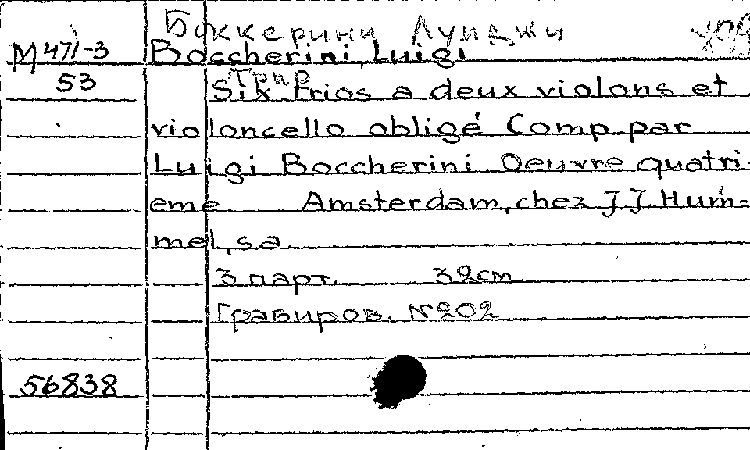 Боккерини Луиджи
М 471-3 Boccherini, Luigi
53 Трио
Six trios a deux violons et
violoncello obligé Comp. par
Luigi Boccherini Oeuvre quatri-
eme Amsterdam, chez J J Hum-
mel, s.a.
3 парт. 32cm
Гравиров. №202
56838